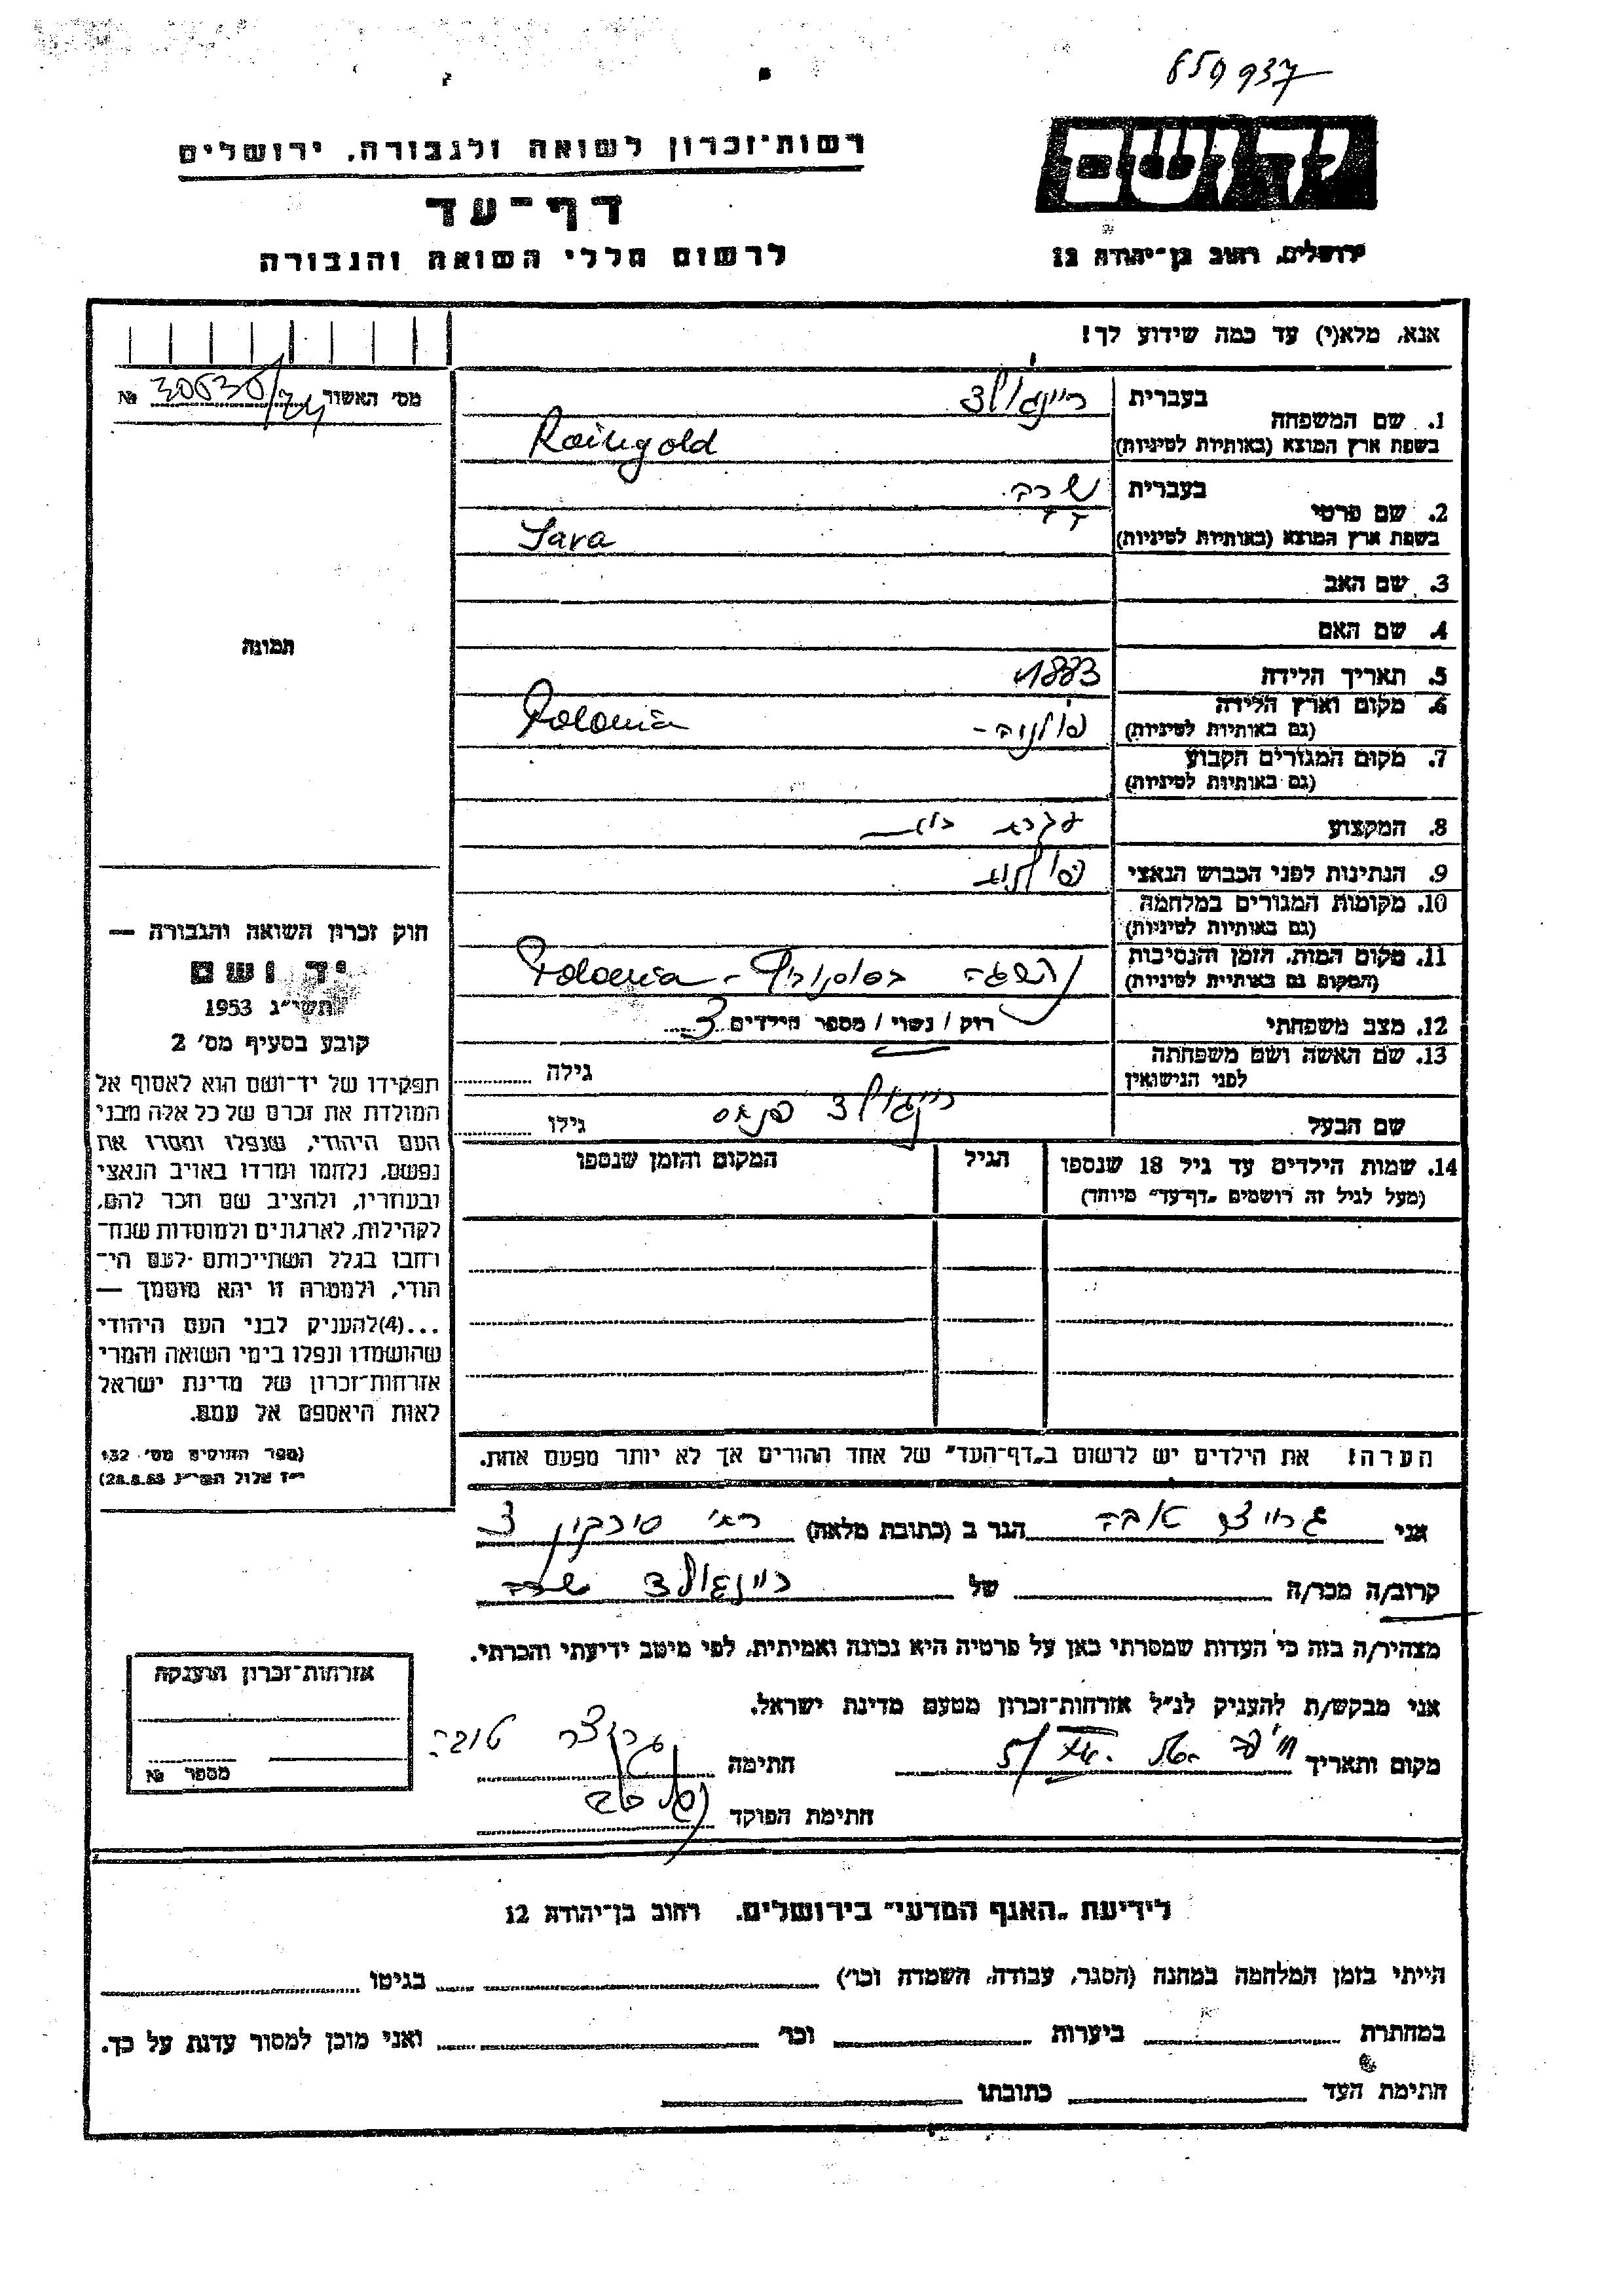 850937
רשות־זכרון לשואה ולגבורה, ירושלים
יד ושם
דף־עד
לרשום חללי השואה והגבורה
ירושלים, רחוב בן־יהודה 12
אנא, מלא(י) עד כמה שידוע לך!
מס׳ האשור №
1. שם המשפחה
בעברית ריינגולד
בשפת ארץ המוצא (באותיות לטיניות) Raingold
2. שם פרטי
בעברית שרה
בשפת ארץ המוצא (באותיות לטיניות) Sara
3. שם האב
4. שם האם
תמונה
5. תאריך הלידה 1883
6. מקום וארץ הלידה פולניה – Polonia
(גם באותיות לטיניות)
7. מקום המגורים הקבוע
(גם באותיות לטיניות)
8. המקצוע עקרת בית
9. הנתינות לפני הכבוש הנאצי
10. מקומות המגורים במלחמה
(גם באותיות לטיניות)
11. מקום המות, הזמן והנסיבות Polonia
(המקום גם באותיות לטיניות)
12. מצב משפחתי רוק / נשוי / מספר הילדים 3
13. שם האשה ושם משפחתה
לפני הנישואין גילה
שם הבעל ריינגולד גילו
14. שמות הילדים עד גיל 18 שנספו הגיל המקום והזמן שנספו
(מעל לגיל זה רושמים „דף־עד״ מיוחד)
הערה! את הילדים יש לרשום ב„דף־העד״ של אחד ההורים אך לא יותר מפעם אחת.
חוק זכרון השואה והגבורה —
יד ושם
תשי״ג 1953
קובע בסעיף מס׳ 2
תפקידו של יד־ושם הוא לאסוף אל
המולדת את זכרם של כל אלה מבני
העם היהודי, שנפלו ומסרו את
נפשם, נלחמו ומרדו באויב הנאצי
ובעוזריו, ולהציב שם וזכר להם,
לקהילות, לארגונים ולמוסדות שנח־
רחבו בגלל השתייכותם לעם הי־
הודי, ולמטרה זו יהא מוסמך —
...(4) להעניק לבני העם היהודי
שהושמדו ונפלו בימי השואה והמרי
אזרחות־זכרון של מדינת ישראל
לאות היאספם אל עמם.
(ספר החוקים מס׳ 132
י״ז אלול תשי״ג 28.8.53)
אני הגר ב (כתובת מלאה)
קרוב/ה מכר/ה של ריינגולד שרה
מצהיר/ה בזה כי העדות שמסרתי כאן על פרטיה היא נכונה ואמיתית, לפי מיטב ידיעתי והכרתי.
אני מבקש/ת להעניק לנ״ל אזרחות־זכרון מטעם מדינת ישראל.
מקום ותאריך חיפה חתימה
חתימת הפוקד
אזרחות־זכרון הוענקה
מספר №
לידיעת „האגף המדעי״ בירושלים, רחוב בן־יהודה 12
הייתי בזמן המלחמה במחנה (הסגר, עבודה, השמדה וכו׳) בגיטו
במחתרת ביערות וכו׳ ואני מוכן למסור עדות על כך.
חתימת העד כתובתו